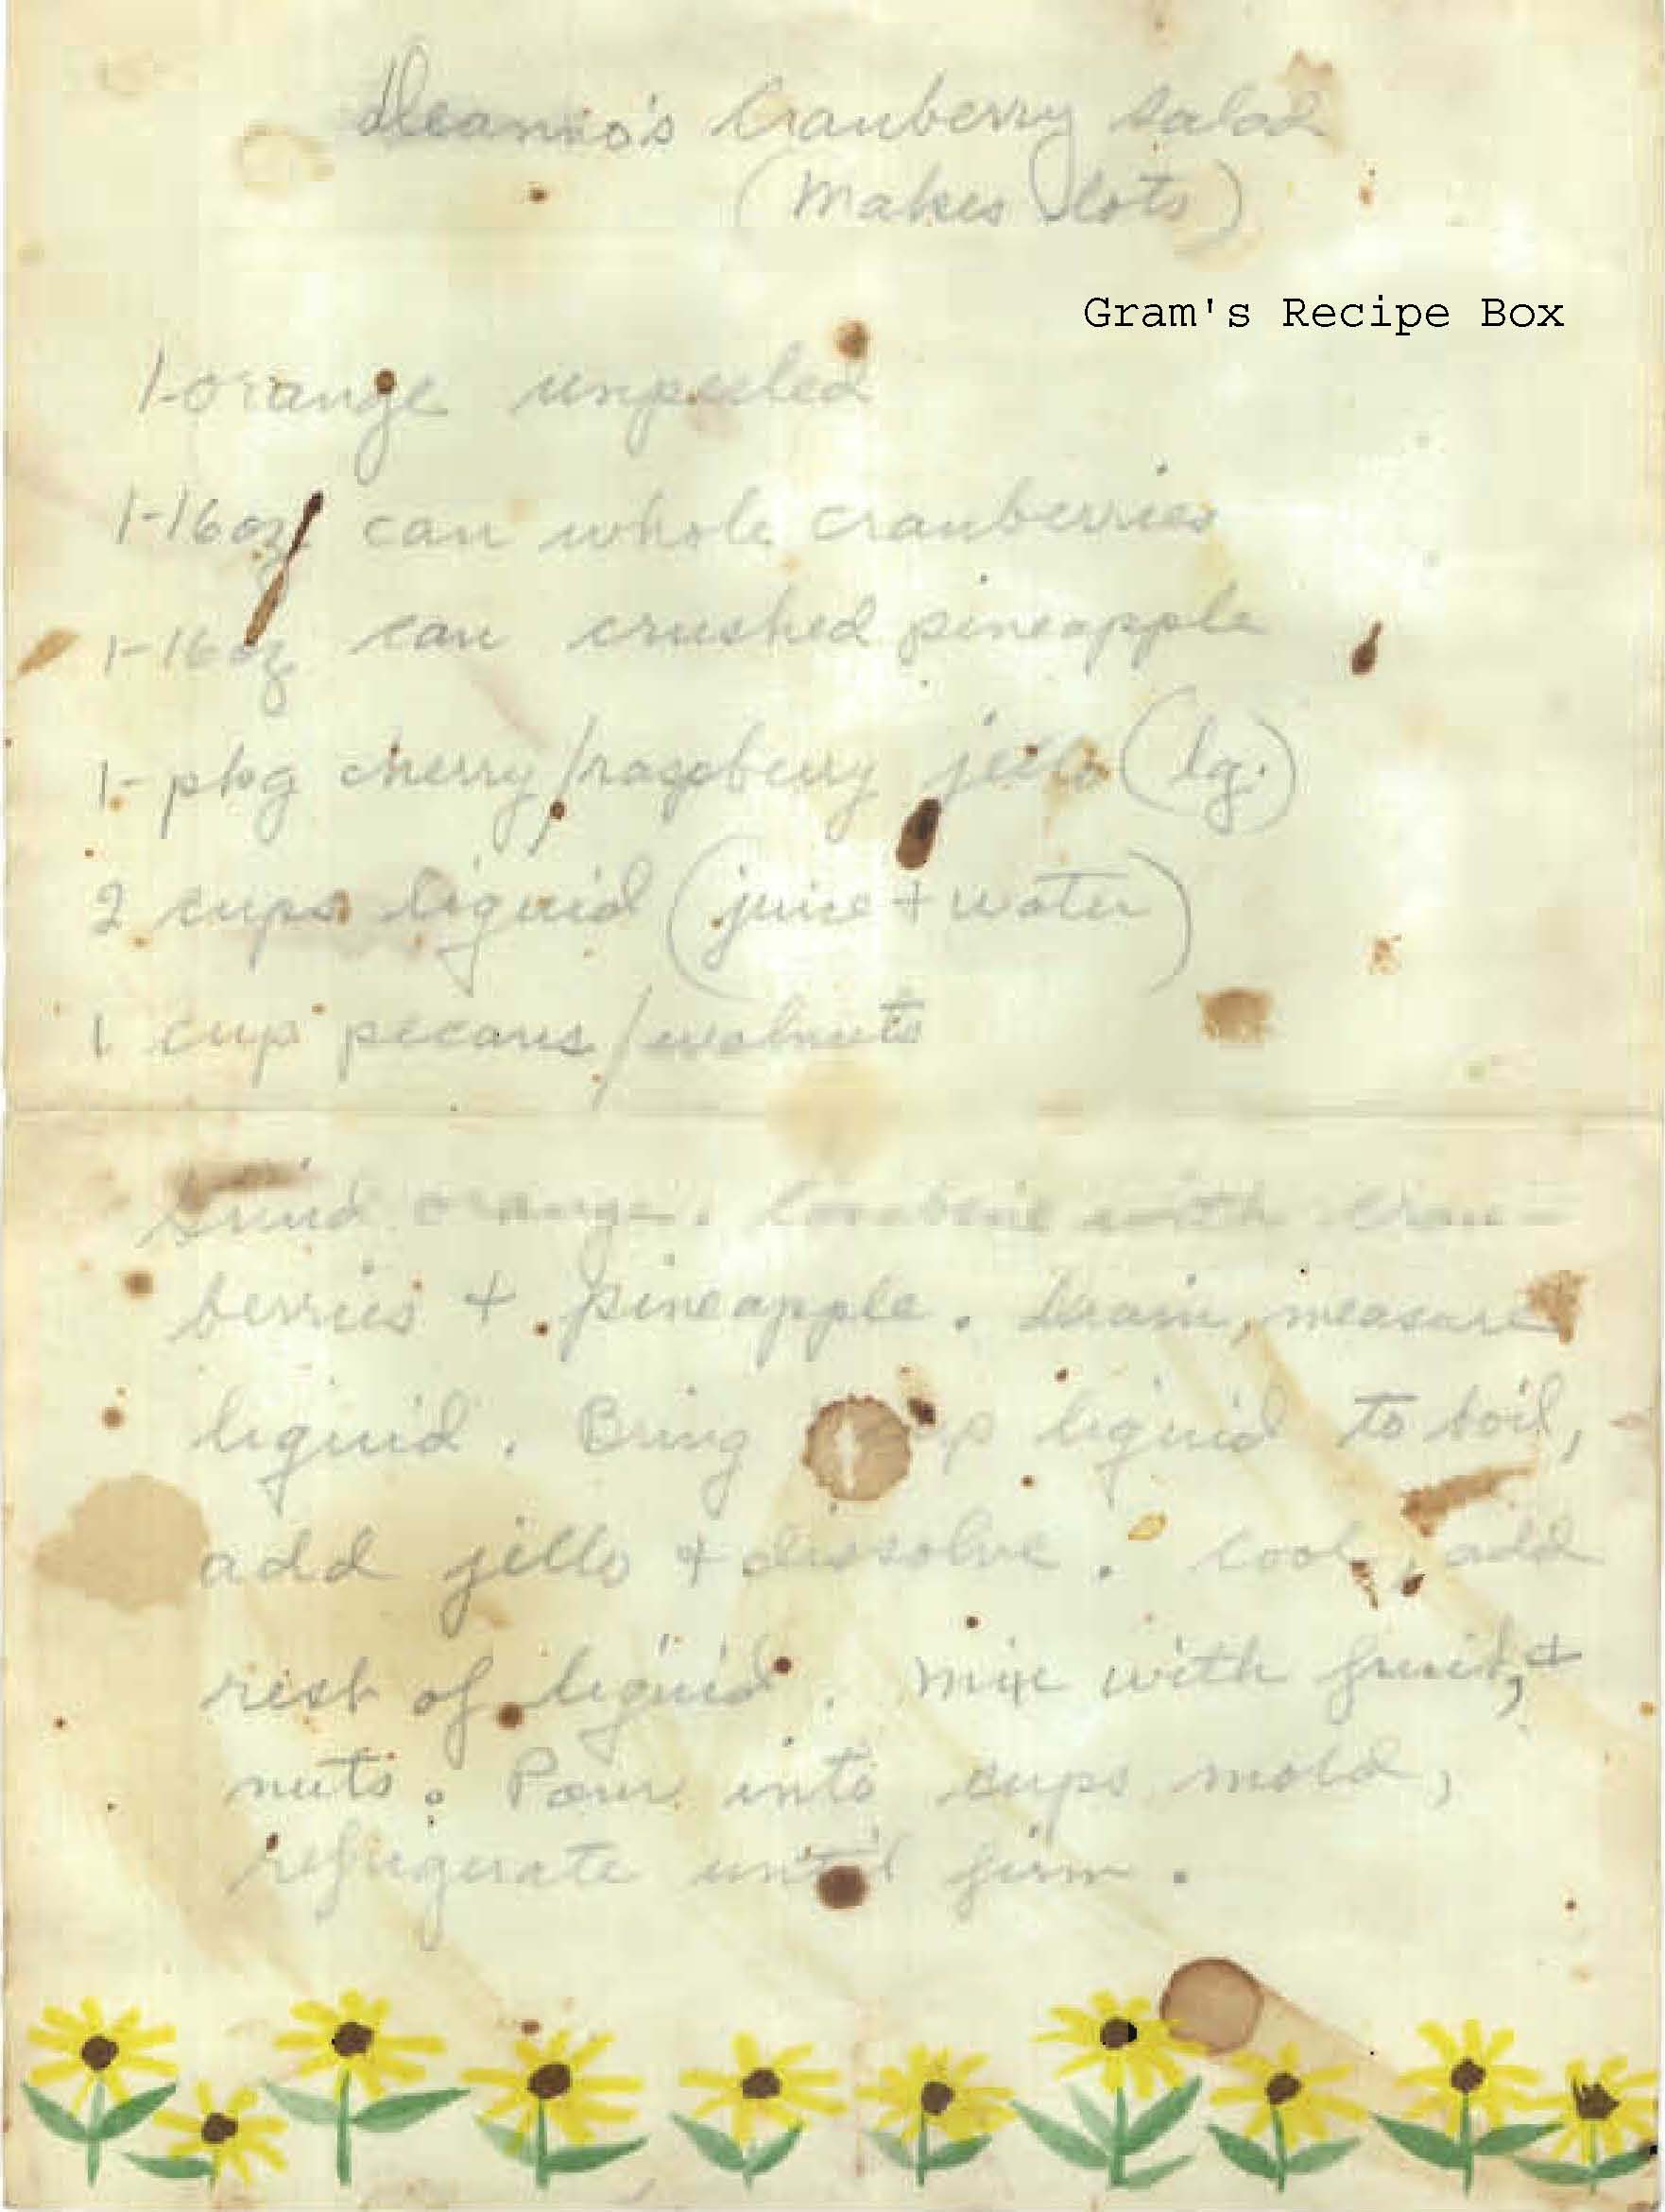 Deanna's Cranberry Salad
(Makes lots)
Gram's Recipe Box
1-orange unpeeled
1-16oz can whole cranberries
1-16oz can crushed pineapple
1-pkg cherry/raspberry jello (lg.)
2 cups liquid (juice + water)
1 cup pecans/walnuts
Grind orange. Combine with cran-
berries + pineapple. Drain, measure
liquid. Bring liquid to boil,
add jello + dissolve. Cool, add
rest of liquid. Mix with fruit, +
nuts. Pour into cups, mold,
refrigerate until firm.